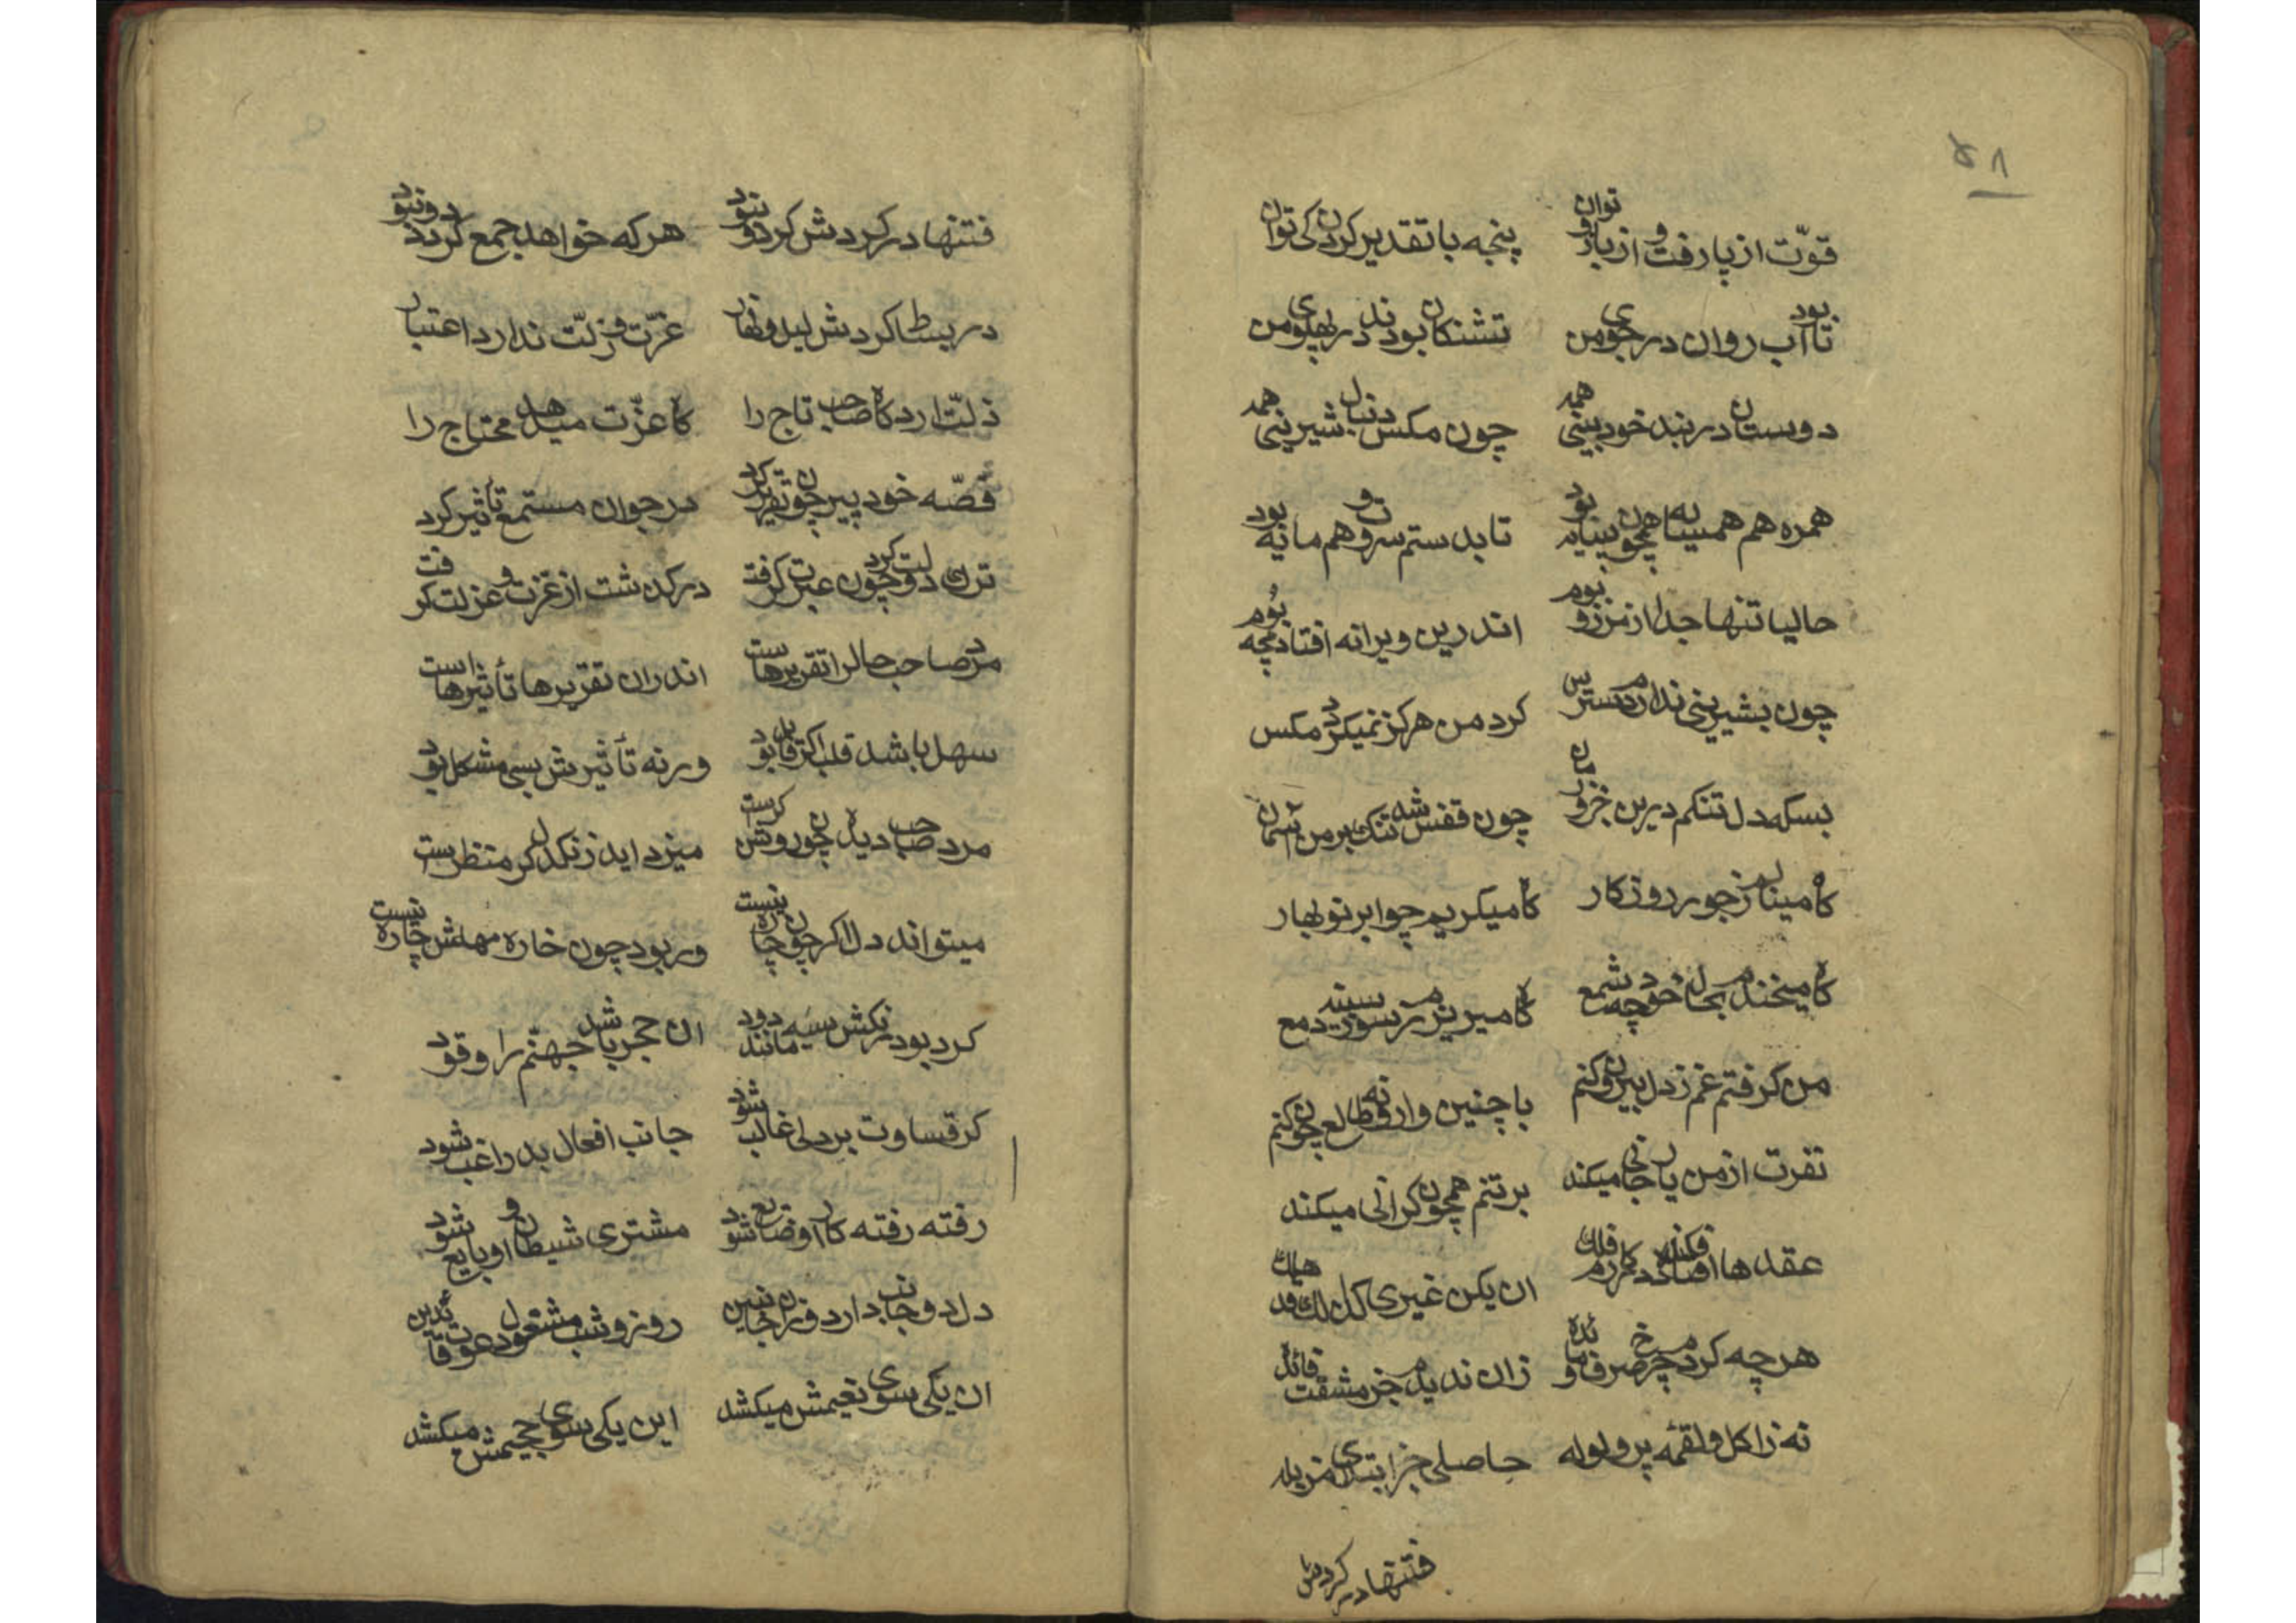 ۸۱
قوّت از پا رفت و از بازو توان    پنجه با تقدیر کردن کی توان
تا بود آب روان در جوی من    تشنکان بودند در پهلوی من
دوستان در بند خود بینی همه    چون مکس دنبال شیرینی همه
همره هم همسا یه همچون بود    تا بدستم سر و هم مایه بود
حالیا تنها جدا از مرز و بوم    اندرین ویرانه افتادم چه بُوم
چون بشیرینی ندارم دسترس    کرد من هرکز نمیکردد مکس
بسکه دل تنکم درین جزو زمان    چون قفس شد تنک بر من آسمان
کاه مینالم ز جور روزکار    کاه میکریم چو ابر نوبهار
کاه میخندم بحال خود چه شمع    کاه میریزم ز سوز سینه دمع
من کرفتم غم ز دل بیرون کنم    با چنین وارونه طالع چون کنم
نفرت از من یار جانی میکند    بر تنم همچون کرانی میکند
عقدها افکنده در کارم فلک    ان یکن غیری کل لک هیلک
هر چه کردم خرج صرف مائده    زان ندیدم جز مشقت فائده
نه ز اکل و لقمه پر ولوله    حاصلی جز ابتدای مزبله
فتنها در کردش
فتنها در کردش کردون بود    هر که خواهد جمع کردد دون بود
در بساط کردش لیل و نهار    عزّت و ذلّت ندارد اعتبار
ذلّت ارد کاه صاحب تاج را    کاه عزّت میدهد محتاج را
قصّه خود پیر چون تقریر کرد    در جوان مستمع تأثیر کرد
ترک دولت کرد چون عبرت کرفت    درکذشت از عزّت و عزلت کرفت
مرد صاحب حال را تقریرهاست    اندران تقریرها تأثیرهاست
سهل باشد قلب اکر قابل بود    ورنه تأثیرش بسی مشکل بود
مرد صاحب دیده چون روشن کرست    میزداید زنک دل کر منتظرست
میتواند دل اکر چون چاره نیست    ور بود چون خاره مهلش چاره نیست
کر بود زنکش سیه مانند دود    ان حجر باشد جهنّم را وقود
کر قساوت بر دلی غالب شود    جانب افعال بد راغب شود
رفته رفته کار او ضایع شود    مشتری شیطان و او بایع شود
دل دو جانب دارد و زان جانبین    روز و شب مشغول دعوت قائدین
ان یکی سوی نعیمش میکشد    این یکی سوی جحیمش میکشد